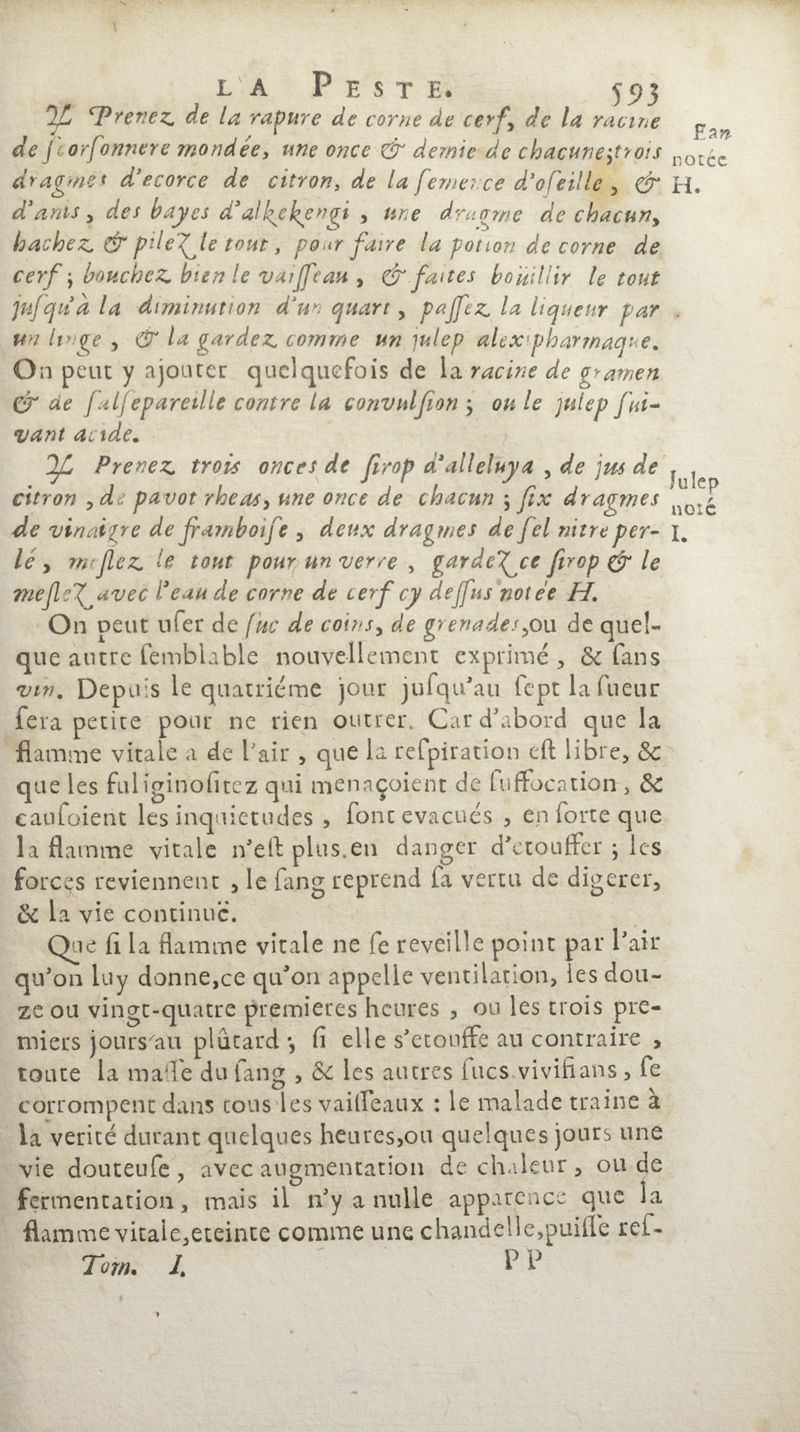 LA PESTE. 593
℞ Prenez de la rapure de corne de cerf, de la racine
de scorsonnere mondée, une once & demie de chacune;trois
dragmes d'ecorce de citron, de la semence d'oseille, &
d'anis, des bayes d'alkekengi, une dragme de chacun,
hachez & pilez le tout, pour faire la potion de corne de
cerf; bouchez bien le vaisseau, & faites boüillir le tout
jusqu'à la diminution d'un quart, passez la liqueur par
un linge, & la gardez comme un julep alexipharmaque.
On peut y ajouter quelquefois de la racine de gramen
& de salsepareille contre la convulsion; ou le julep sui-
vant acide.
Eau
notée
H.
℞ Prenez trois onces de sirop d'alleluya, de jus de
citron, de pavot rheas, une once de chacun; six dragmes
de vinaigre de framboise, deux dragmes de sel nitre per-
lé, meslez le tout pour un verre, gardez ce sirop & le
meslez avec l'eau de corne de cerf cy dessus notée H.
Julep
noté
I.
On peut user de suc de coins, de grenades,ou de quel-
que autre semblable nouvellement exprimé, & sans
vin. Depuis le quatriéme jour jusqu'au sept la sueur
sera petite pour ne rien outrer. Car d'abord que la
flamme vitale a de l'air, que la respiration est libre, &
que les fuliginositez qui menaçoient de suffocation, &
causoient les inquietudes, sont evacués, en sorte que
la flamme vitale n'est plus en danger d'etouffer; les
forces reviennent, le sang reprend sa vertu de digerer,
& la vie continuë.
Que si la flamme vitale ne se reveille point par l'air
qu'on luy donne,ce qu'on appelle ventilation, les dou-
ze ou vingt-quatre premieres heures, ou les trois pre-
miers jours au plûtard; si elle s'etouffe au contraire,
toute la masse du sang, & les autres sucs vivifians, se
corrompent dans tous les vaisseaux : le malade traine à
la verité durant quelques heures,ou quelques jours une
vie douteuse, avec augmentation de chaleur, ou de
fermentation, mais il n'y a nulle apparence que la
flamme vitale,eteinte comme une chandelle,puisse res-
Tom. I. PP